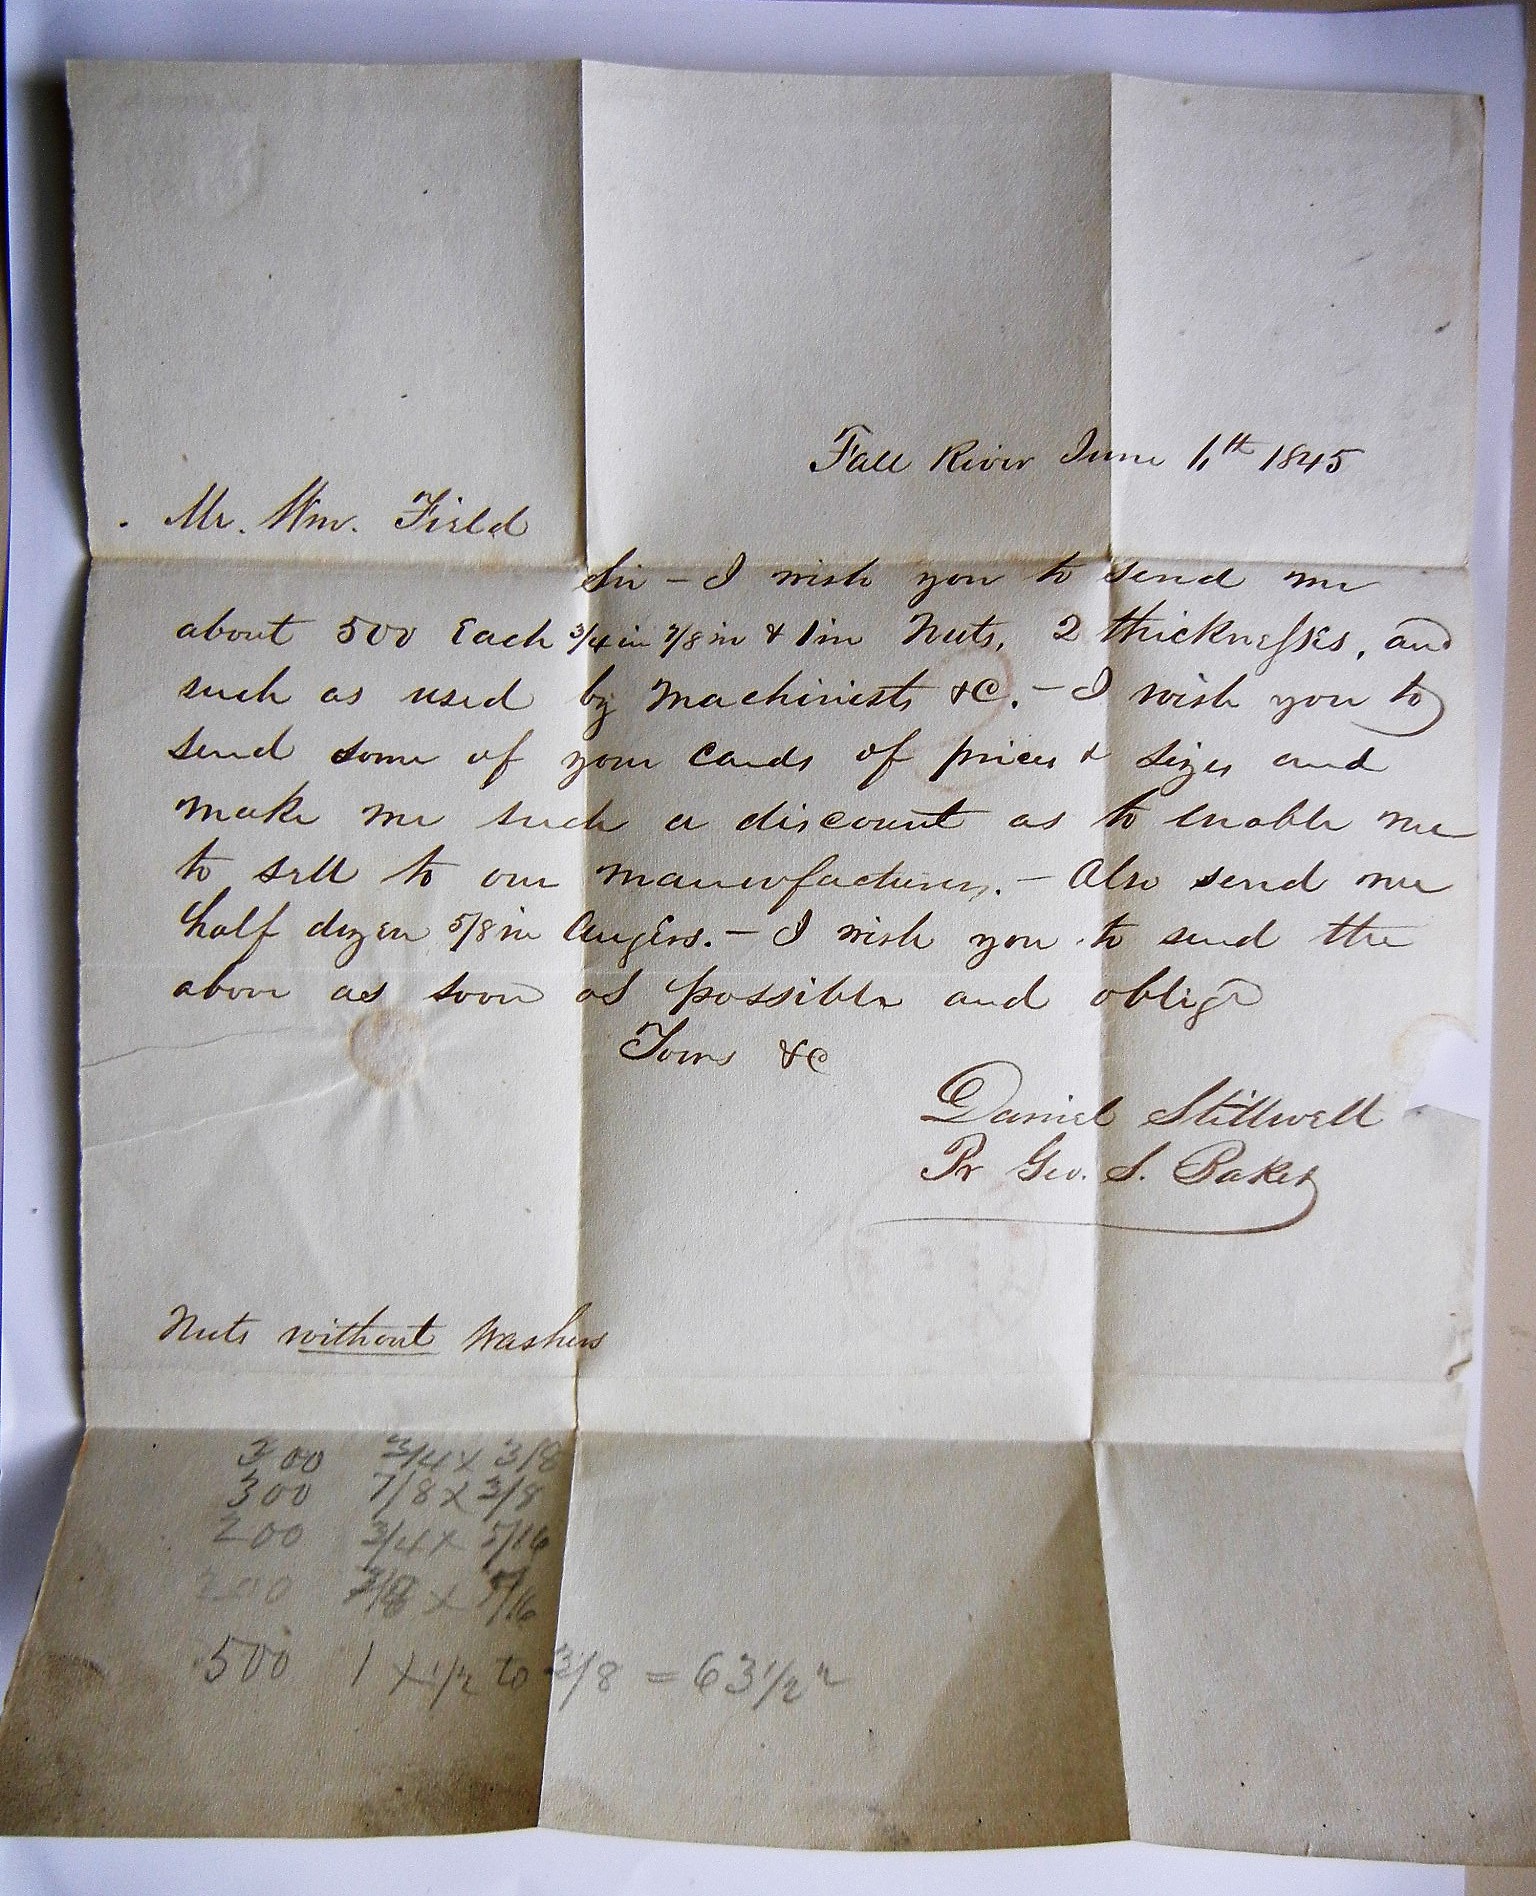 Fall River June 11th 1845
Mr. Wm. Field
Sir – I wish you to send me
about 500 Each 3/4 in 7/8 in & 1 in Nuts, 2 thicknesses, and
such as used by Machinists &C. – I wish you to
send some of your Cards of prices & sizes and
make me such a discount as to enable me
to sell to our manufacturers. – Also send me
half dozen 5/8 in Augers. – I wish you to send the
above as soon as possible and oblige
Yours &c
Daniel Stillwell
Pr Geo. S. Baker
Nuts without Washers
300 3/4 x 3/8
300 7/8 x 3/8
200 3/4 x 5/16
200 7/8 x 5/16
500 1 x 1/2 to 3/8 = 63 1/2